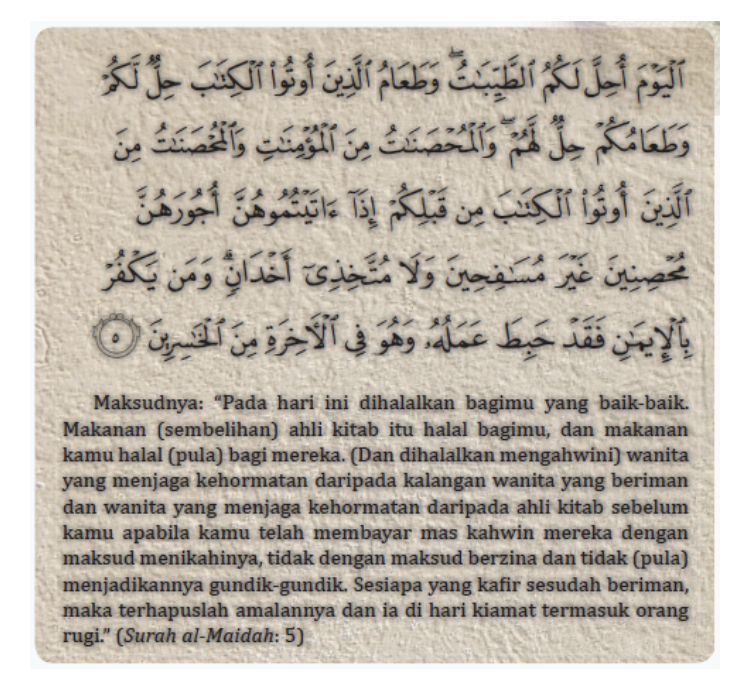 ٱلۡيَوۡمَ أُحِلَّ لَكُمُ ٱلطَّيِّبَٰتُۖ وَطَعَامُ ٱلَّذِينَ أُوتُواْ ٱلۡكِتَٰبَ حِلّٞ لَّكُمۡ
وَطَعَامُكُمۡ حِلّٞ لَّهُمۡۖ وَٱلۡمُحۡصَنَٰتُ مِنَ ٱلۡمُؤۡمِنَٰتِ وَٱلۡمُحۡصَنَٰتُ مِنَ
ٱلَّذِينَ أُوتُواْ ٱلۡكِتَٰبَ مِن قَبۡلِكُمۡ إِذَآ ءَاتَيۡتُمُوهُنَّ أُجُورَهُنَّ
مُحۡصِنِينَ غَيۡرَ مُسَٰفِحِينَ وَلَا مُتَّخِذِيٓ أَخۡدَانٖۗ وَمَن يَكۡفُرۡ
بِٱلۡإِيمَٰنِ فَقَدۡ حَبِطَ عَمَلُهُۥ وَهُوَ فِي ٱلۡأٓخِرَةِ مِنَ ٱلۡخَٰسِرِينَ ٥
Maksudnya: “Pada hari ini dihalalkan bagimu yang baik-baik.
Makanan (sembelihan) ahli kitab itu halal bagimu, dan makanan
kamu halal (pula) bagi mereka. (Dan dihalalkan mengahwini) wanita
yang menjaga kehormatan daripada kalangan wanita yang beriman
dan wanita yang menjaga kehormatan daripada ahli kitab sebelum
kamu apabila kamu telah membayar mas kahwin mereka dengan
maksud menikahinya, tidak dengan maksud berzina dan tidak (pula)
menjadikannya gundik-gundik. Sesiapa yang kafir sesudah beriman,
maka terhapuslah amalannya dan ia di hari kiamat termasuk orang
rugi.” (Surah al-Maidah: 5)